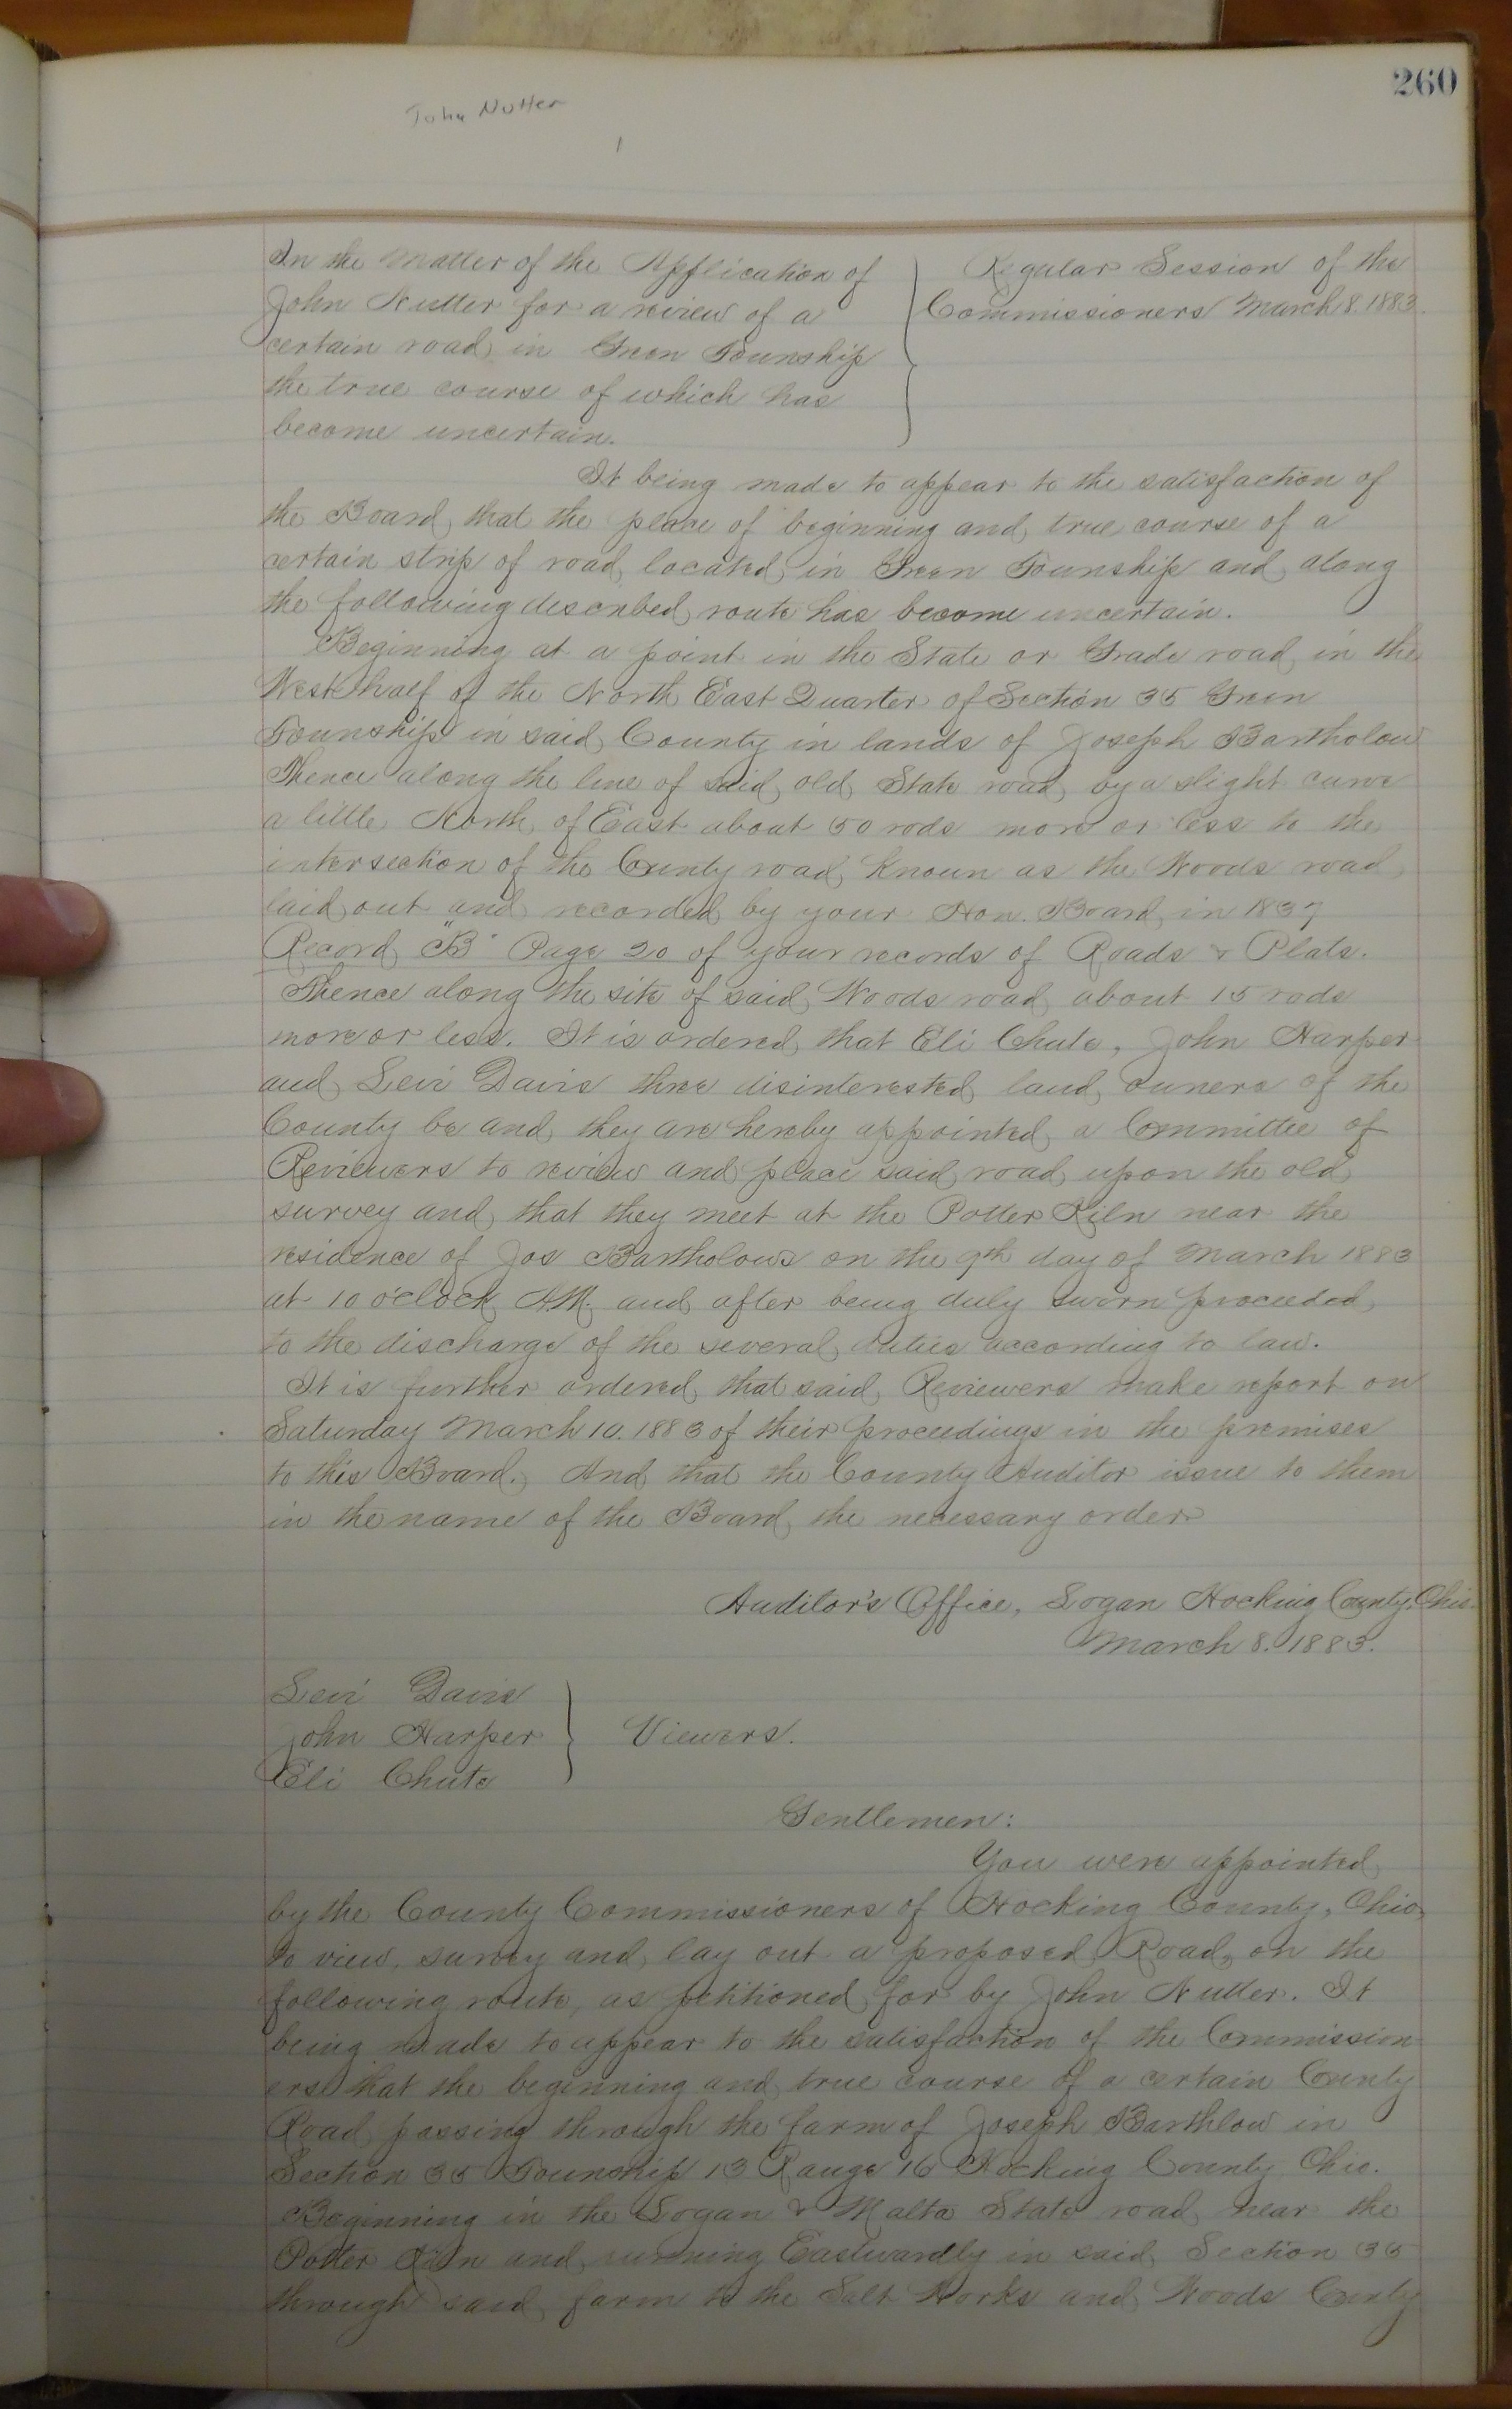 260
John Nutter
In the Matter of the Application of
John Nutter for a review of a
certain road in Green Township
the true course of which has
become uncertain.
Regular Session of the
Commissioners March 8. 1883.
It being made to appear to the satisfaction of
the Board that the place of beginning and true course of a
certain strip of road located in Green Township and along
the following described route has become uncertain.
Beginning at a point in the State or Grade road in the
West half of the North East Quarter of Section 35 Green
Township in said County in lands of Joseph Bartholow
Thence along the line of said old State road by a slight curve
a little North of East about 50 rods more or less to the
intersection of the County road known as the Woods road
laid out and recorded by your Hon. Board in 1837
Record "B" Page 20 of your records of Roads & Plats.
Thence along the site of said Woods road about 15 rods
more or less. It is ordered that Eli Chute, John Harper
and Levi Davis three disinterested land owners of the
County be and they are hereby appointed a Committee of
Reviewers to review and place said road upon the old
survey and that they meet at the Potter Kiln near the
residence of Jos Bartholows on the 9th day of March 1883
at 10 o'clock A.M. and after being duly sworn proceeded
to the discharge of the several duties according to law.
It is further ordered that said Reviewers make report on
Saturday March 10. 1883 of their proceedings in the premises
to this Board. And that the County Auditor issue to them
in the name of the Board the necessary order
Auditor's Office, Logan Hocking County, Ohio.
March 8. 1883.
Levi Davis
John Harper
Eli Chute
Viewers.
Gentlemen:
You were appointed
by the County Commissioners of Hocking County, Ohio,
to view, survey and lay out a proposed Road, on the
following route, as petitioned for by John Nutter. It
being made to appear to the satisfaction of the Commission
ers that the beginning and true course of a certain County
Road passing through the farm of Joseph Barthlow in
Section 35 Township 13 Range 16 Hocking County Ohio.
Beginning in the Logan & Malta State road near the
Potter Kiln and running Eastwardly in said Section 35
through said farm to the Salt Works and Woods County